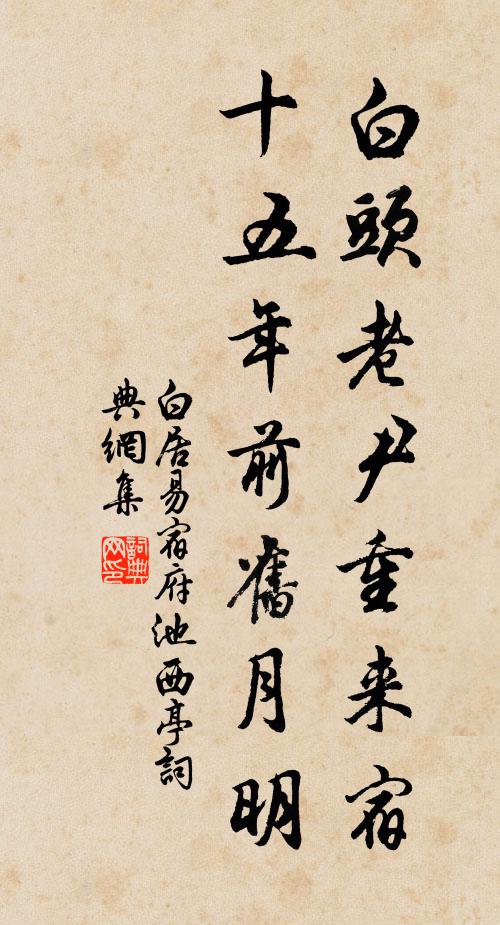 白頭老尹重来宿
十五年前舊月明
白居易宿府池西亭詞
典網集
詞典
网印